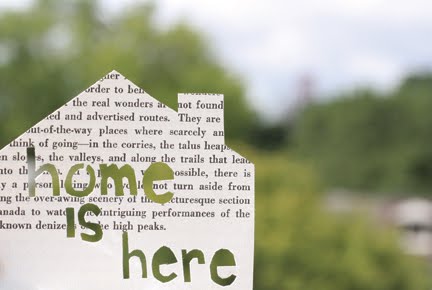 order to ben
the real wonders are not found
ied and advertised routes. They are
out-of-the-way places where scarcely an
think of going—in the corries, the talus heaps
slopes, the valleys, and along the trails that lead
ossible, there is
turn aside from
ng the over-awing scenery of the picturesque section
anada to watch intriguing performances of the
known denizens of the high peaks.
home
is
here